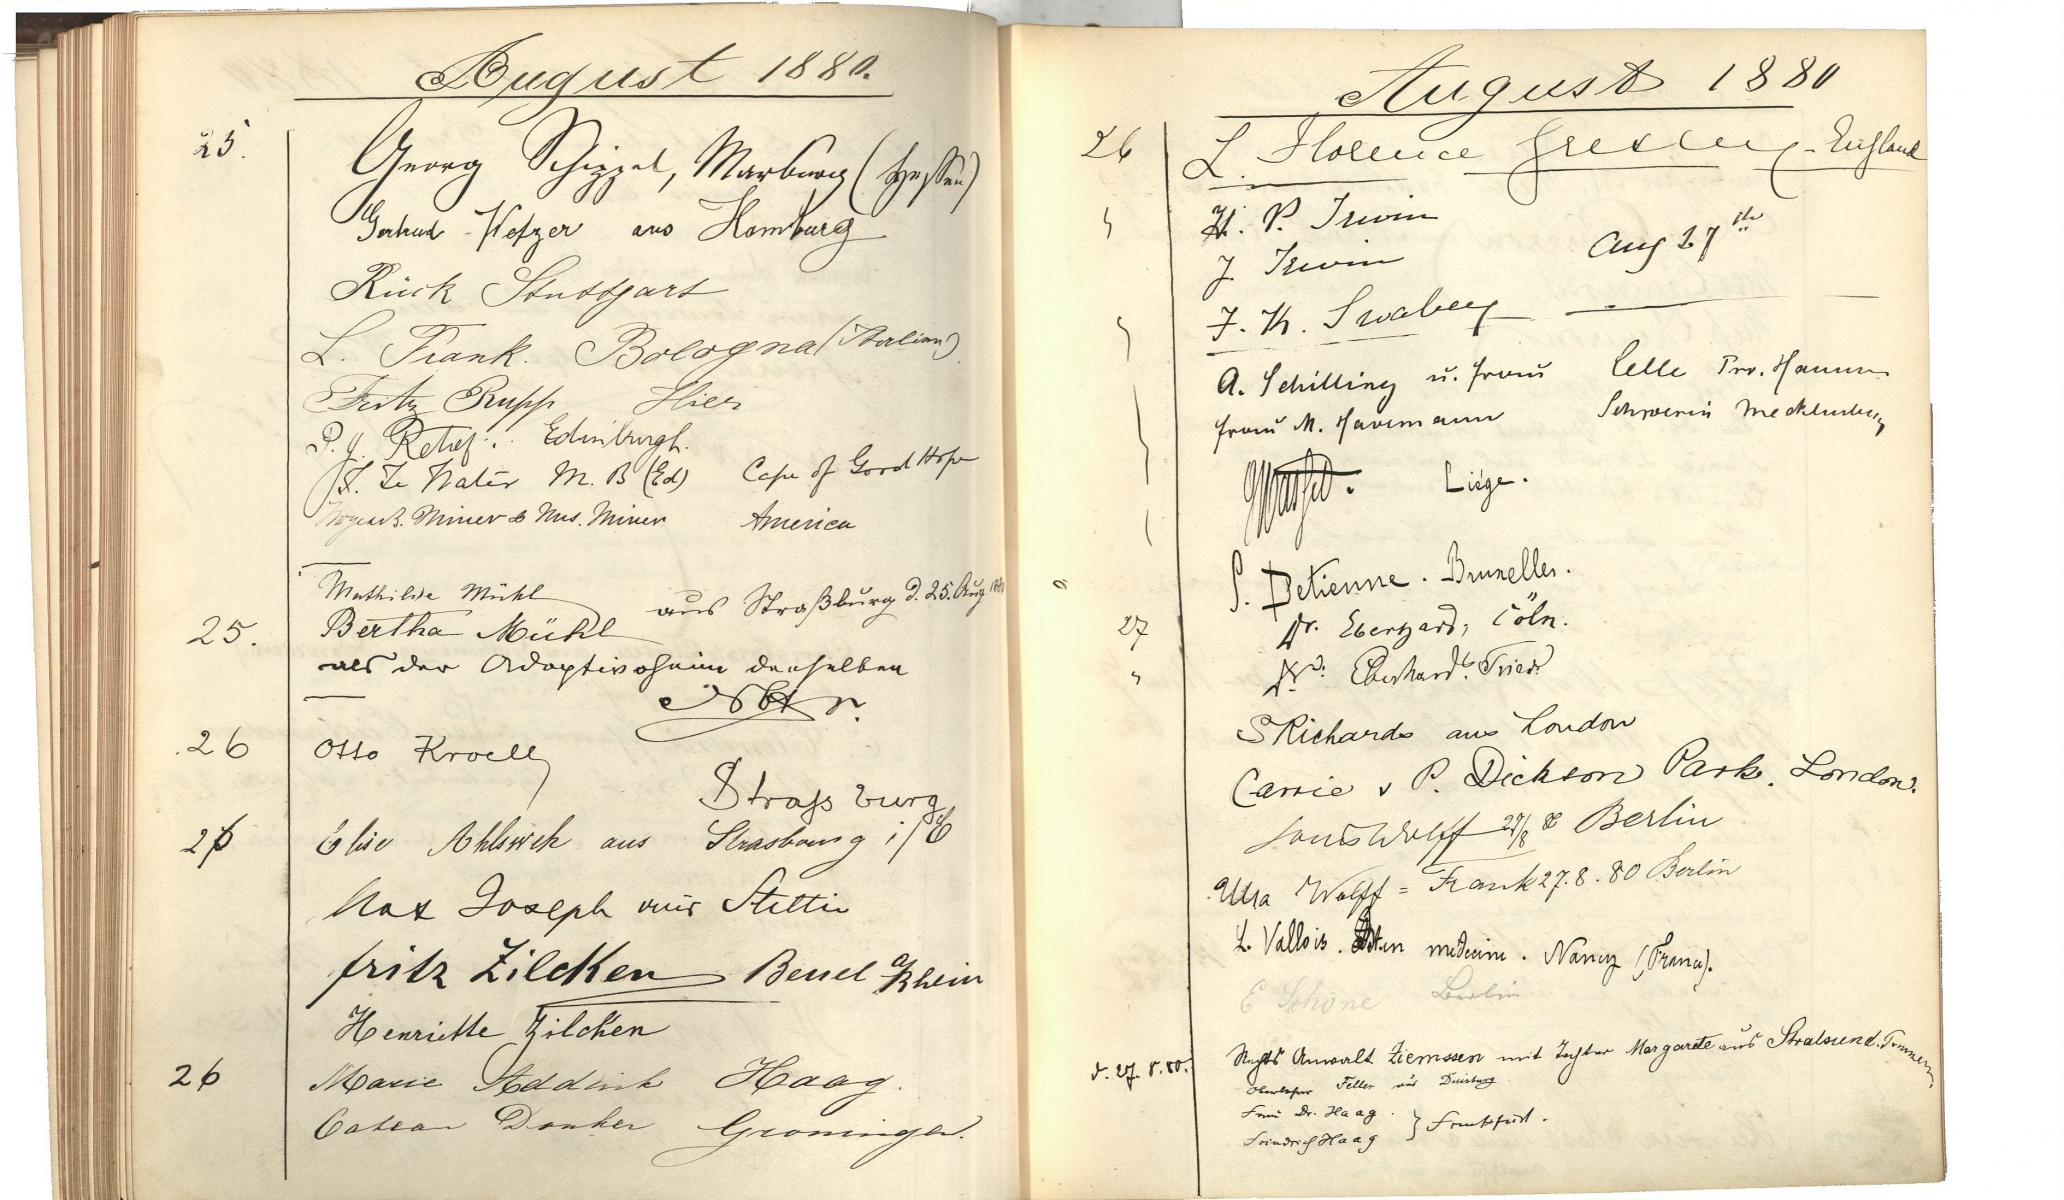 August 1880.
25.
Georg Schippel, Marburg (Hessen)
Gertrud Wetzer aus Homburg
Rück Stuttgart
L. Frank. Bologna (Italien)
Fritz Rupp Hier
P. J. Retief. Edinburgh.
Te Water M. B (Ed) Cape of Good Hope
Miner & Mrs. Miner America
Mathilde Mühl
aus Straßburg d. 25. Aug 1880
25. Bertha Mühl
als der Adoptivoheim derselben
26 Otto Kroell
Strassburg
26 Elise aus Strasbourg i/E
Max Joseph aus Stettin
Fritz Zilcken Beuel a/Rhein
Henriette Zilcken
26 Marie Addink Haag.
Donker Groningen.
August 1880
26 L. Florence England
H. P. Irwin
Aug 27th
J. Irwin
F. H. Swabey
A. Schilling u. Frau Celle Prv. Hannover
Frau M. Havemann Schwerin Mecklenburg
Liége.
Detienne. Bruxelles.
27 Dr. Eberhard, Cöln.
" Dr. Eberhard. Trier
S Richards aus London
Carrie v P. Dickson Park. London.
Louis Wolff 27/8 80 Berlin
Wolff = Frank 27. 8. 80 Berlin
L. Vallois. en medecine. Nancy (France).
E Schöne Berlin
d. 27. 8. 80. Rechts Anwalt Ziemssen mit Tochter Margarete aus Stralsund. Pommern
Oberlehrer Feller aus Duisburg
Frau Dr. Haag.
} Frankfurt.
Friedrich Haag